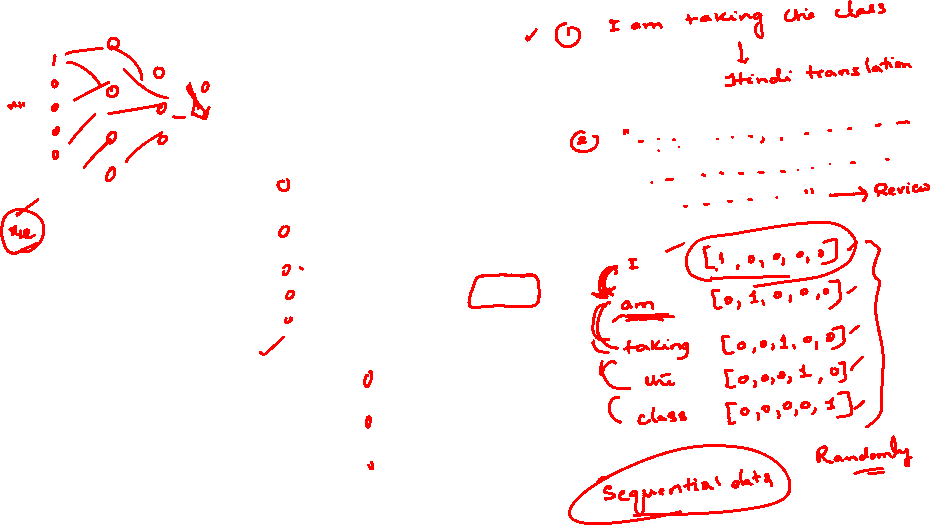 ① I am taking the class
Hindi translation
② " " → Review
I [1, 0, 0, 0, 0]
am [0, 1, 0, 0, 0]
taking [0, 0, 1, 0, 0]
the [0, 0, 0, 1, 0]
class [0, 0, 0, 0, 1]
Randomly
Sequential data